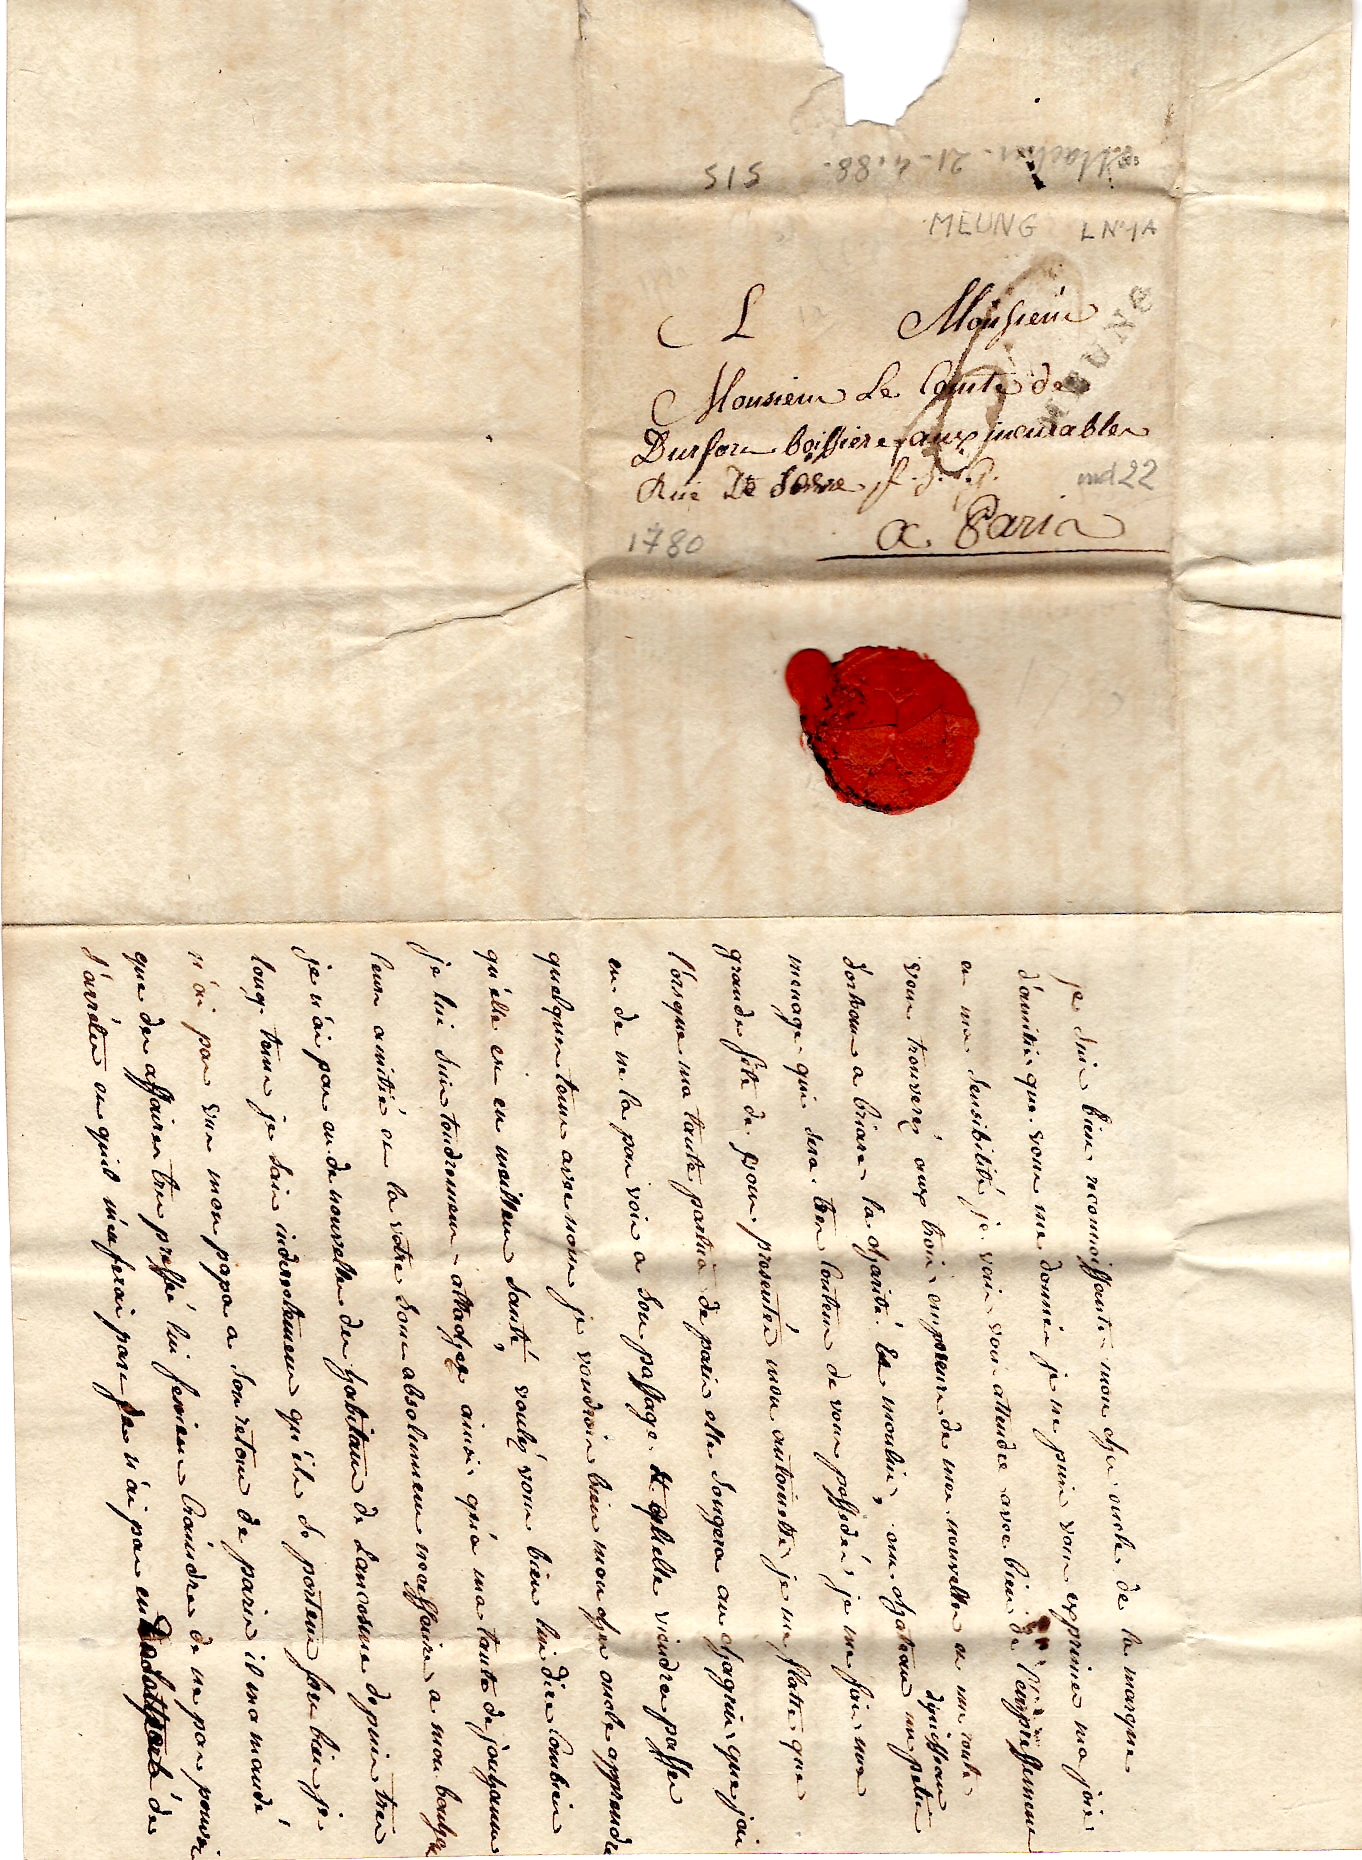 Machin. 21-4.88. 515
MEUNG LN°1A
MEUNG
6
Monsieur
Monsieur Le Comte de
Durfort boissiere aux incurables
Rue De Seve f. S. G.
md 22
1780
a Paris
je suis bien reconnoissante mon cher oncle de la marque
d'amitié que vous me donnés je ne puis vous exprimer ma joie
et ma sensibilité je vais vous attendre avec bien de l'empressement
vous trouverés aux trois empereurs de mes nouvelles et ma route
d'orleans a briare la charité et moulins, au chateau un petit
menage qui sera bien content de vous posseder je me fais une
grande fête de vous presenter mon antoinette je me flatte que
lorsque ma tante partira de paris elle songera au chagrin que j'ai
eu de ne la pas voir a son passage et qu'elle viendra passer
quelques tems avec nous je voudrois bien mon cher oncle apprendre
qu'elle est en meilleure santé, voulés vous bien lui dire combien
je lui suis tendrement attachée ainsi qu'a ma tante de
leur amitié et la votre sont absolument necessaires a mon bonheur
je n'ai pas eu de nouvelles des habitans de Lancosme depuis tres
longs tems je sais indirectement qu'ils se portent fort bien je
n'ai pas vu mon papa a son retour de paris il m'a mandé
que des affaires tres pressé lui faisoient craindre de ne pas pouvoir
s'arrêter et qu'il m'en feroit part je n'ai pas eu de